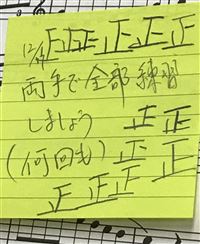 12/17 正正正正正正
両手で全部練習
しましょう 正正
(何回も) 正正
正正正